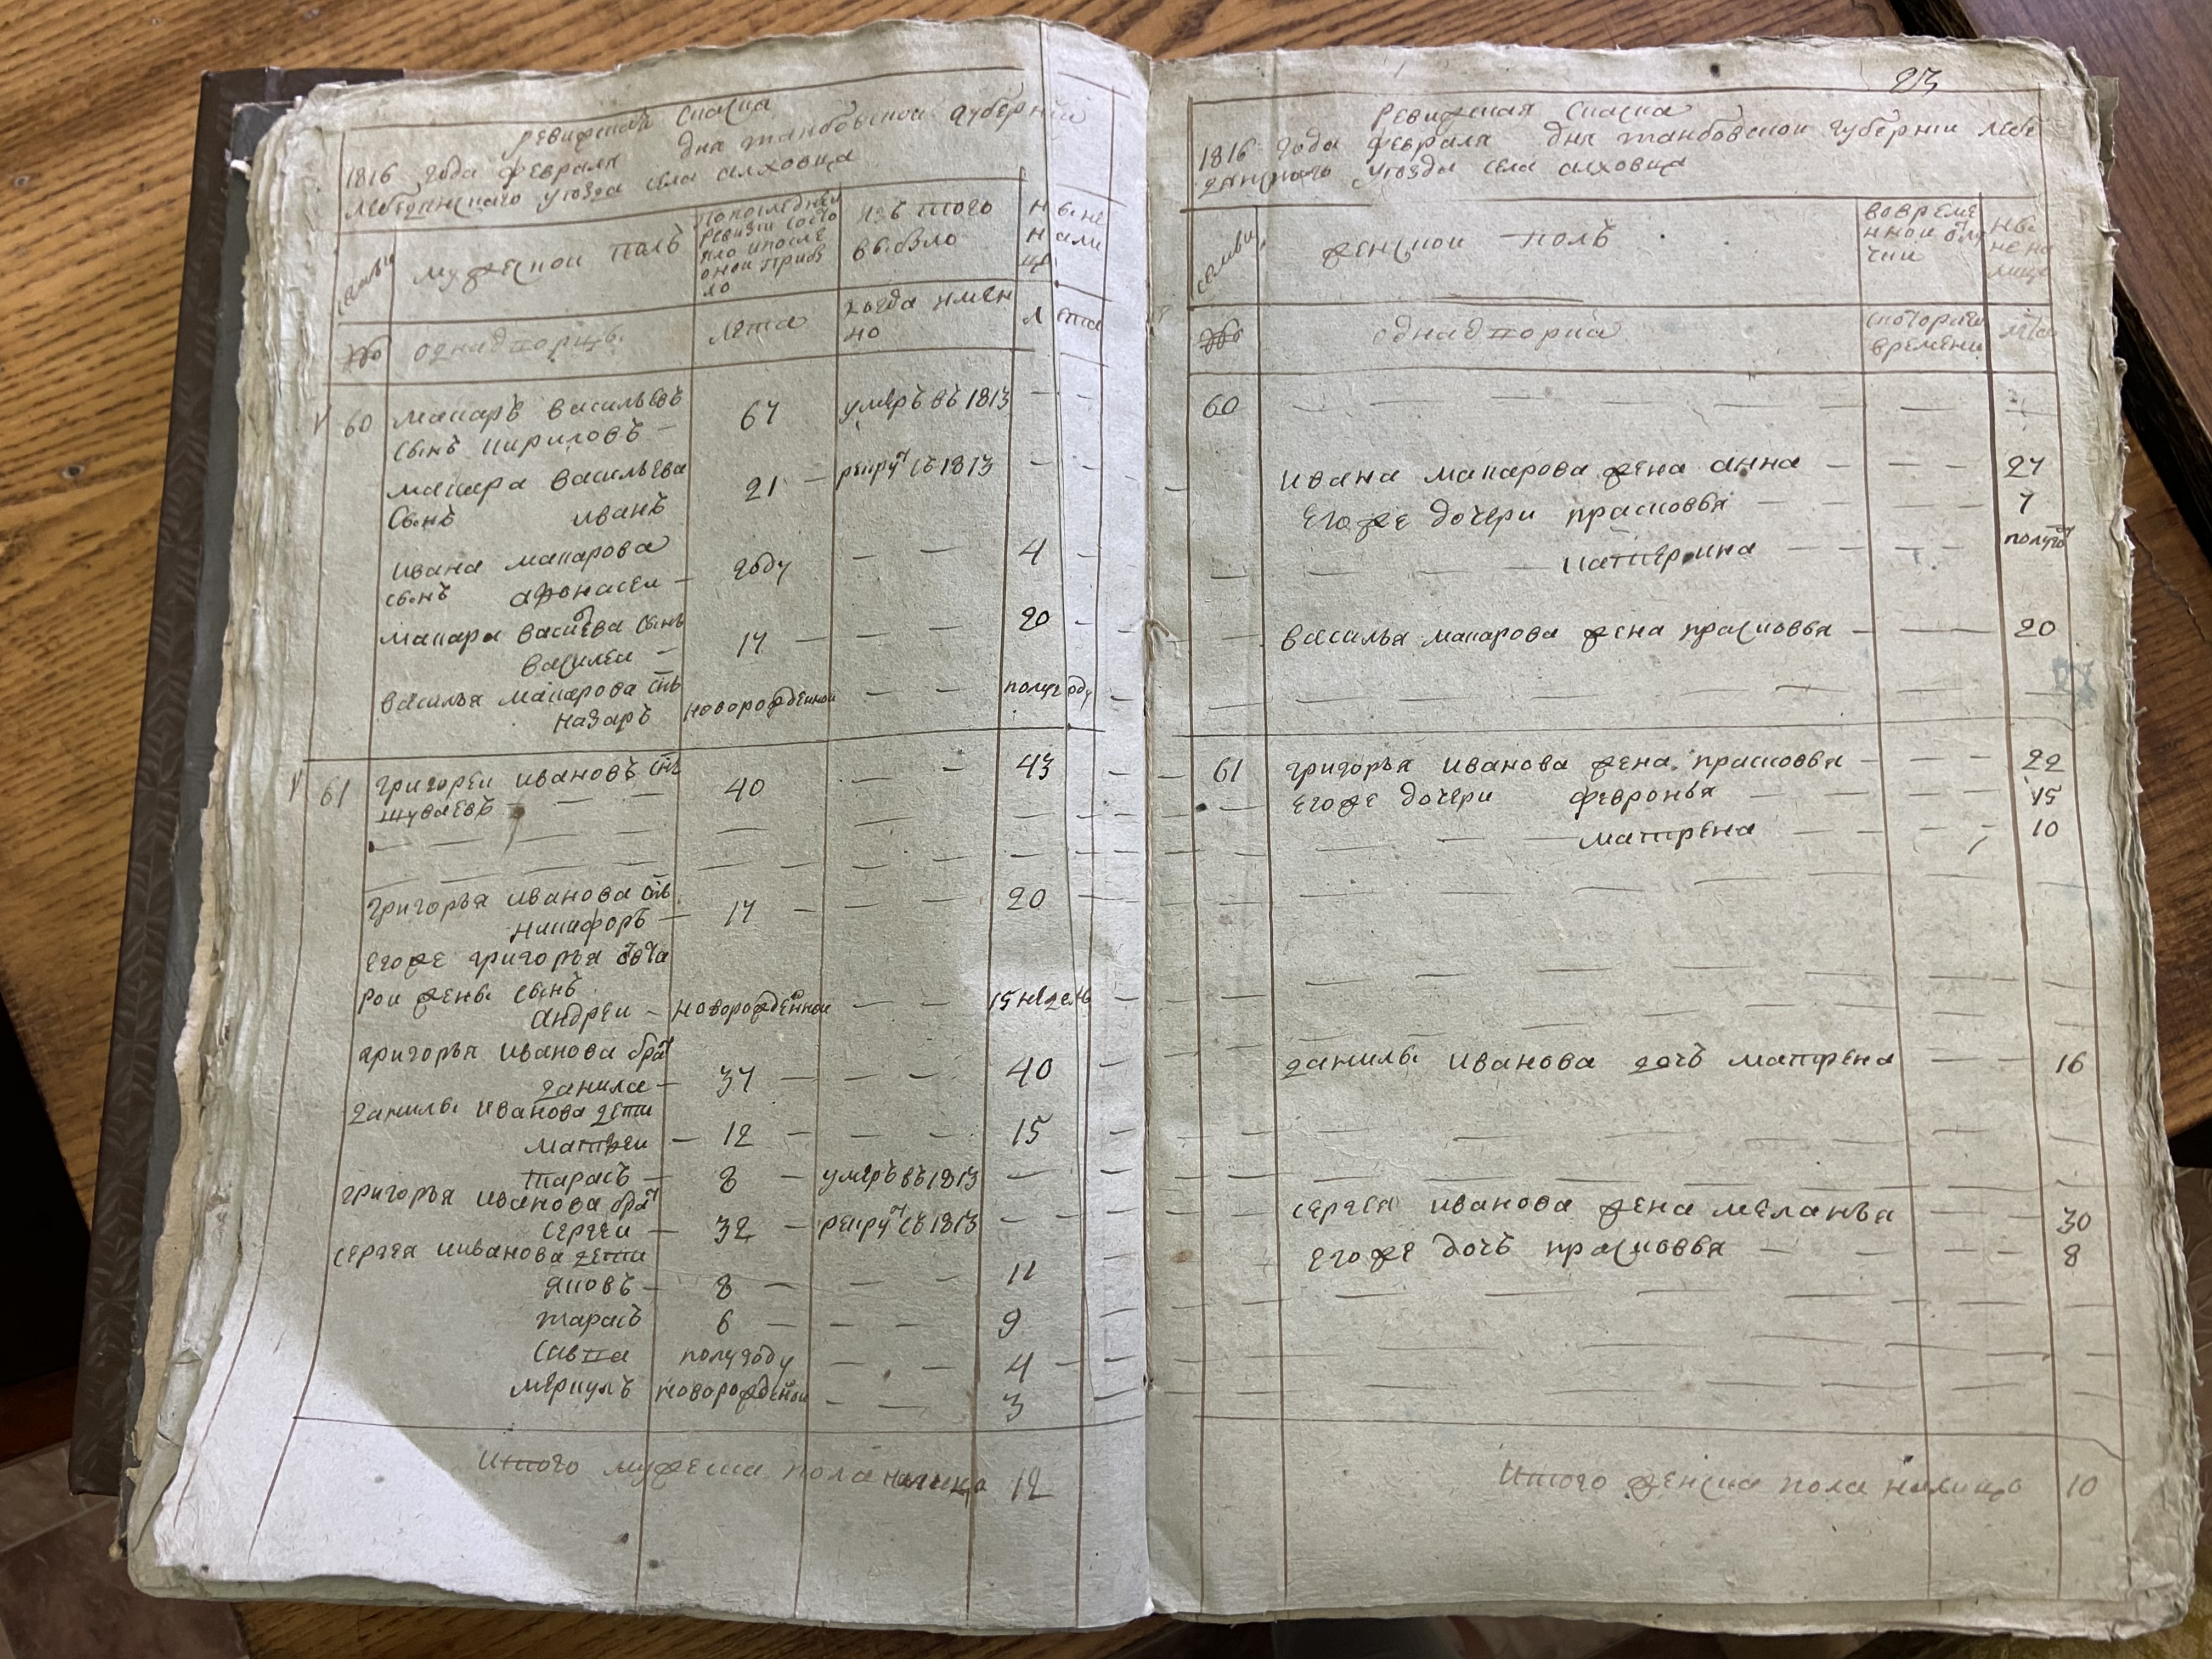 ревижская скаска
1816 года февраля дня танбовской губернии
лебедянскаго уѣзда села ильховца
семьи
мужескои полъ
попоследнеи
ревизи состо
яло ипосле
онои прибы
ло
изъ того
выбыло
ныне
нали
це
однадворцы
лета
когда имен
но
лета
60 макаръ васильевъ
сынъ кириловъ — 67 умеръ въ 1813 — —
макара васильева
сынъ иванъ 21 — рекрутъ съ 1813 — —
ивана макарова
сынъ афонасеи — году — — 4 —
макара василева сынъ
василеи — 17 — — — 20 —
василья макарова сынъ
назаръ новорожденнои — — полугоду —
61 григореи ивановъ сынъ
шуваевъ — — — 40 — — 43 —
григорья иванова сынъ
никифоръ — 17 — — — 20 —
егоже григорья отвта
рои жены сынъ
андреи — новорожденнои — — 15 недель —
григорья иванова братъ
данила — 37 — — — 40 —
данилы иванова дети
матвеи — 12 — — — 15
тарасъ — 8 — умеръ въ 1813 — —
григорья иванова братъ
сергеи — 32 — рекрутъ съ 1813 — —
сергея ииванова дети
яковъ — 8 — — — 11
тарасъ 6 — — — 9
савва полугоду — — 4 —
меркулъ новорожденои — — 3
Итого мужеска пола налицо 12
23
ревижская скаска
1816 года февраля дня танбовской губернии лебе
дянскаго уѣзда села ильховца
семьи
женскои полъ
вовреме
ннои отлу
чки
ны
не на
лице
однадворки
скоторого
времени
лета
60 — — — —
ивана макарова жена анна — — — 27
егоже дочери прасковья — — — 7
— — — катерина — — — полугоду
василья макарова жена прасковья — — — 20
61 григорья иванова жена прасковья — — — 22
егоже дочери февронья — — — 15
— — — матрена — — — 10
данилы иванова дочь матрена — — 16
сергея иванова жена меланья — — 30
егоже дочь прасковья — — — 8
Итого женска пола налицо 10